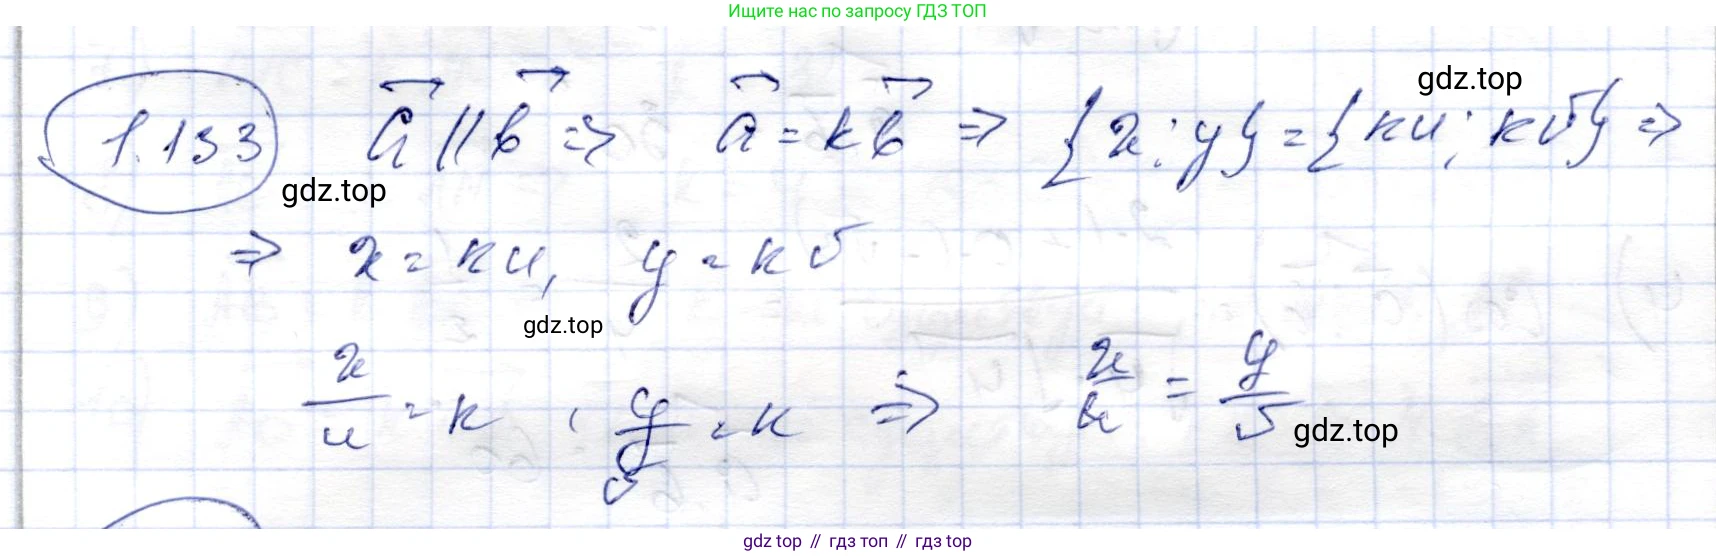 Ищите нас по запросу ГДЗ ТОП
gdz.top
1.133 a⃗ || b⃗ => a⃗ = kb⃗ => {x; y} = {ku; kv} =>
gdz.top
=> x = ku, y = kv
gdz.top
x/u = k, y/v = k => x/u = y/v
gdz.top
gdz.top // гдз топ // гдз top